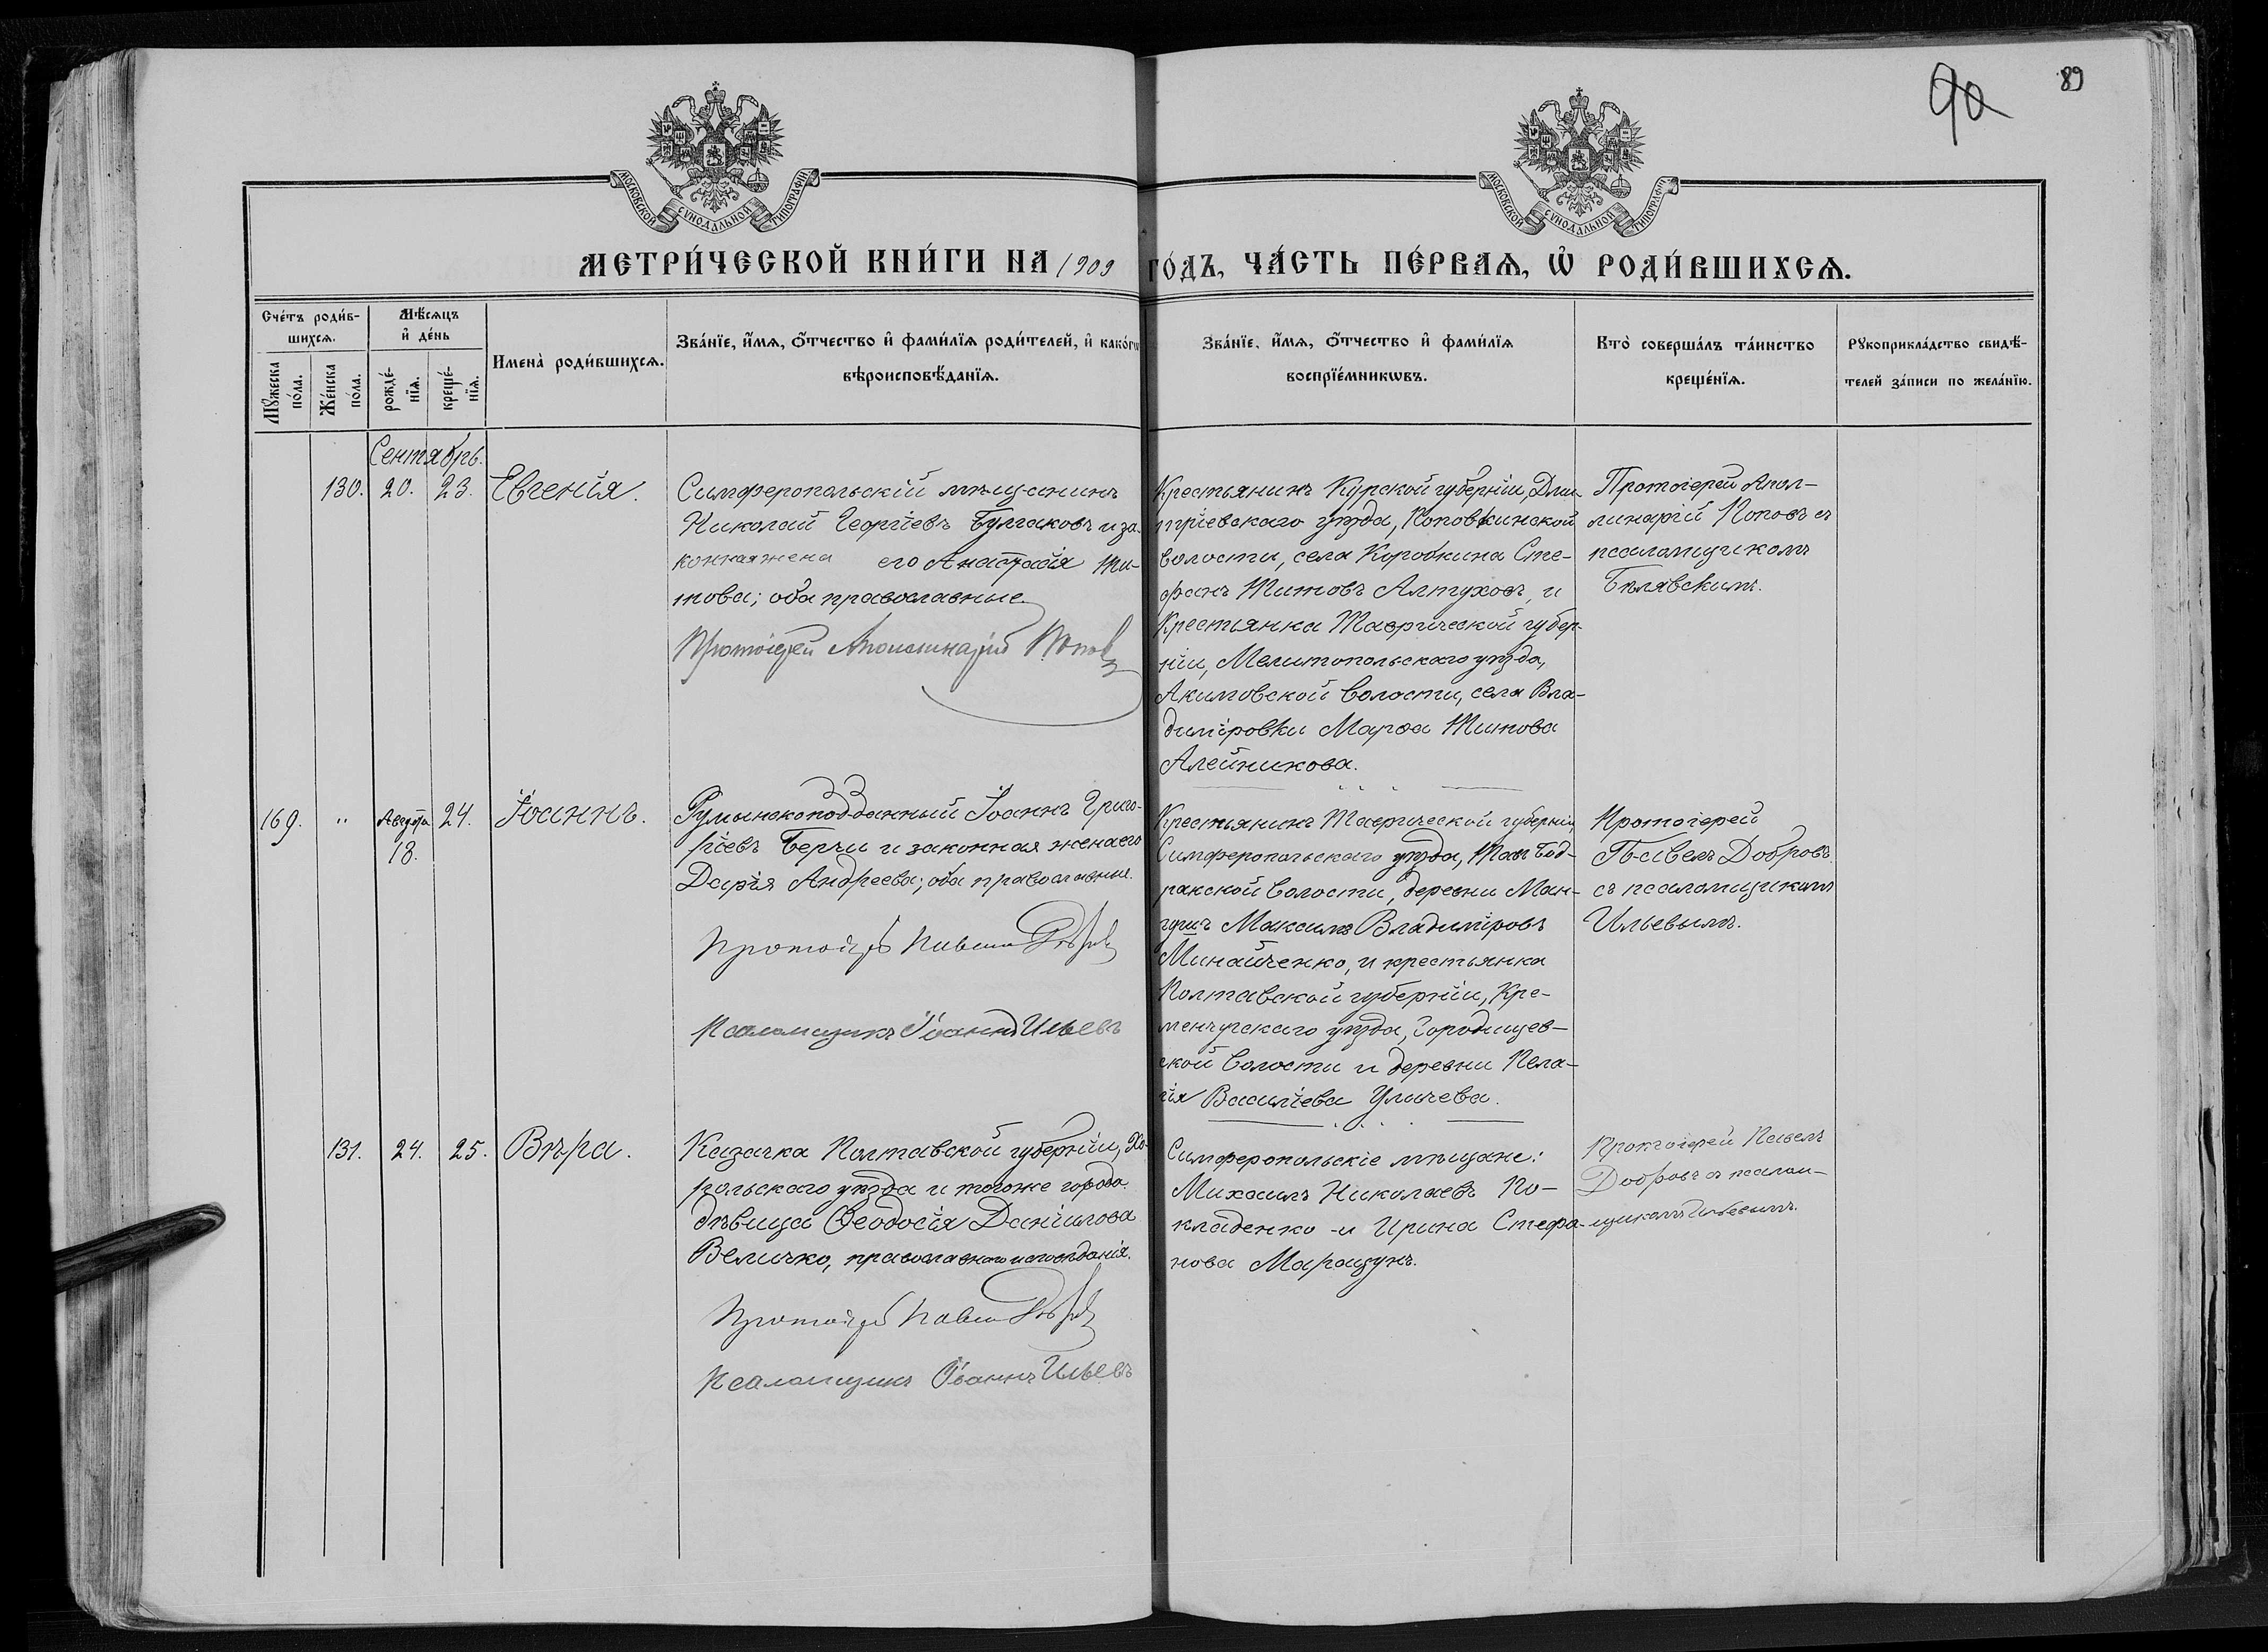 90
89
МОСКОВСКОЙ СѴНОДАЛЬНОЙ ТИПОГРАФІИ
МОСКОВСКОЙ СѴНОДАЛЬНОЙ ТИПОГРАФІИ
МЕТРИ́ЧЕСКОЙ КНИ́ГИ НА 1909 ГО́ДЪ, ЧА́СТЬ ПЕ́РВАѦ, Ѡ҆ РОДИ́ВШИХСѦ.
Сче́тъ роди́в-
шихсѧ.
Мꙋ́жеска по́ла.
Же́нска по́ла.
Мѣ́сѧцъ
и҆ де́нь
рожде́-
нїѧ.
креще́-
нїѧ.
Имена̀ роди́вшихсѧ.
Зва́нїе, и҆́мѧ, ѻ҆́тчество и҆ фами́лїѧ роди́телей, и҆ како́гѡ
вѣроисповѣ́данїѧ.
Зва́нїе, и҆́мѧ, ѻ҆́тчество и҆ фами́лїѧ
воспрїе́мникѡвъ.
Кто̀ соверша́лъ та́инство
креще́нїѧ.
Рꙋкоприкла́дство свидѣ́-
телей за́писи по жела́нїю.
Сентябрь.
130. 20. 23. Евгенія.
Симферопольскій мѣщанинъ
Николай Георгіевъ Булгаковъ и за-
конная жена его Анастасія Ти-
това; оба православные
Протоіерей Аполлинарій Поповъ
Крестьянинъ Курской губерніи, Дми-
тріевскаго уѣзда, Поповкинской
волости, села Коробкина Сте-
фанъ Титовъ Алтуховъ, и
Крестьянка Таврической губер-
ніи, Мелитопольскаго уѣзда,
Акимовской волости, села Вла-
диміровки Марѳа Титова
Алейникова.
Протоіерей Апол-
линарій Поповъ съ
псаломщикомъ
Бѣлявскимъ.
169. " Августа 24. Іоаннъ.
18.
Румынскоподданный Іоаннъ Григо-
ріевъ Берчи и законная жена его
Дарія Андреева; оба православные.
Протоіерей Павелъ Добровъ
Псаломщикъ Іоаннъ Ильевъ
Крестьянинъ Таврической губерніи,
Симферопольскаго уѣзда, Тав Бод-
ракской волости, деревни Ман-
гушъ Максимъ Владиміровъ
Минайченко, и крестьянка
Полтавской губерніи, Кре-
менчугскаго уѣзда, Городищев-
ской волости и деревни Пела-
гія Василіева Уличева.
Протоіерей
Павелъ Добровъ
съ псаломщикомъ
Ильевымъ.
131. 24. 25. Вѣра.
Казачка Полтавской губерніи, Хо-
рольскаго уѣзда и того же города
дѣвица Ѳеодосія Даніилова
Величко, православнаго исповѣданія.
Протоіерей Павелъ Добровъ
Псаломщикъ Іоаннъ Ильевъ
Симферопольскіе мѣщане:
Михаилъ Николаевъ По-
кладенко и Ирина Стефа-
нова Маращукъ.
Протоіерей Павелъ
Добровъ съ псалом-
щикомъ Ильевымъ.